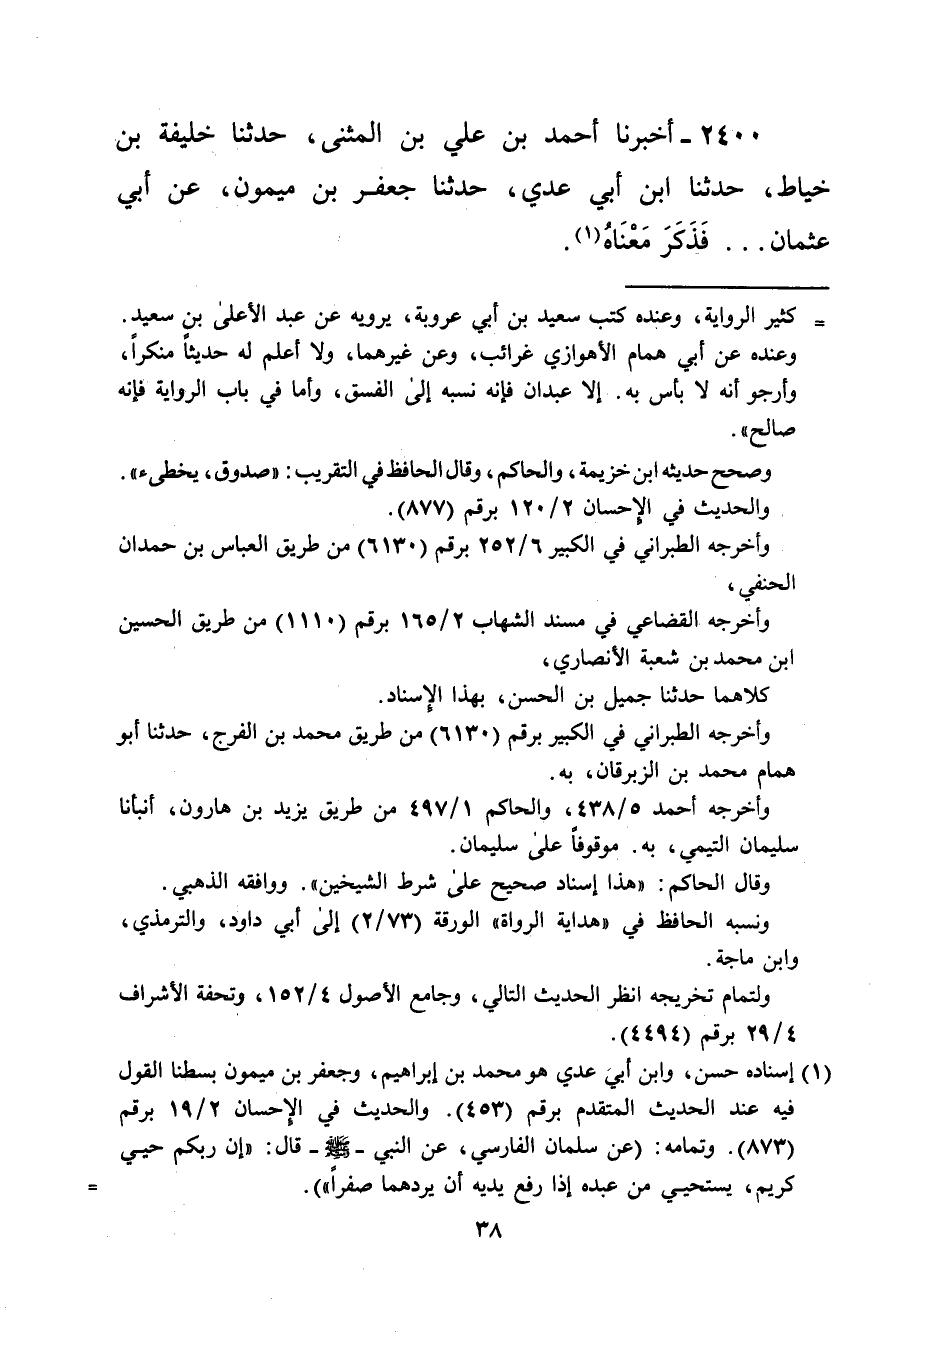 ٢٤٠٠ ـ أخبرنا أحمد بن علي بن المثنى، حدثنا خليفة بن
خياط، حدثنا ابن أبي عدي، حدثنا جعفـر بن ميمون، عن أبي
عثمان... فَذَكَرَ مَعْنَاهُ(١).
= كثير الرواية، وعنده كتب سعيد بن أبي عروبة، يرويه عن عبد الأعلىٰ بن سعيد.
وعنده عن أبي همام الأهوازي غرائب، وعن غيرهما، ولا أعلم له حديثاً منكراً،
وأرجو أنه لا بأس به. إلا عبدان فإنه نسبه إلىٰ الفسق، وأما في باب الرواية فإنه
صالح».
وصحح حديثه ابن خزيمة، والحاكم، وقال الحافظ في التقريب: «صدوق، يخطىء».
والحديث في الإحسان ١٢٠/٢ برقم (٨٧٧).
وأخرجه الطبراني في الكبير ٢٥٢/٦ برقم (٦١٣٠) من طريق العباس بن حمدان
الحنفي،
وأخرجه القضاعي في مسند الشهاب ١٦٥/٢ برقم (١١١٠) من طريق الحسين
ابن محمد بن شعبة الأنصاري،
كلاهما حدثنا جميل بن الحسن، بهذا الإسناد.
وأخرجه الطبراني في الكبير برقم (٦١٣٠) من طريق محمد بن الفرج، حدثنا أبو
همام محمد بن الزبرقان، به.
وأخرجه أحمد ٤٣٨/٥، والحاكم ٤٩٧/١ من طريق يزيد بن هارون، أنبأنا
سليمان التيمي، به. موقوفاً علىٰ سليمان.
وقال الحاكم: «هذا إسناد صحيح علىٰ شرط الشيخين». ووافقه الذهبي.
ونسبه الحافظ في «هداية الرواة» الورقة (٢/٧٣) إلىٰ أبي داود، والترمذي،
وابن ماجة.
ولتمام تخريجه انظر الحديث التالي، وجامع الأصول ١٥٢/٤، وتحفة الأشراف
٢٩/٤ برقم (٤٤٩٤).
(١) إسناده حسن، وابن أبي عدي هو محمد بن إبراهيم، وجعفر بن ميمون بسطنا القول
فيه عند الحديث المتقدم برقم (٤٥٣). والحديث في الإحسان ١٩/٢ برقم
(٨٧٣). وتمامه: (عن سلمان الفارسي، عن النبي ـ ﷺ ـ قال: «إن ربكم حيـي
كريم، يستحيـي من عبده إذا رفع يديه أن يردهما صفراً»). =
٣٨